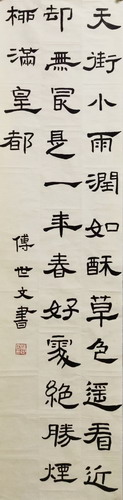 天街小雨潤如酥草色遙看近
却無㝡是一年春好處絕勝煙
柳滿皇都
傅世文書